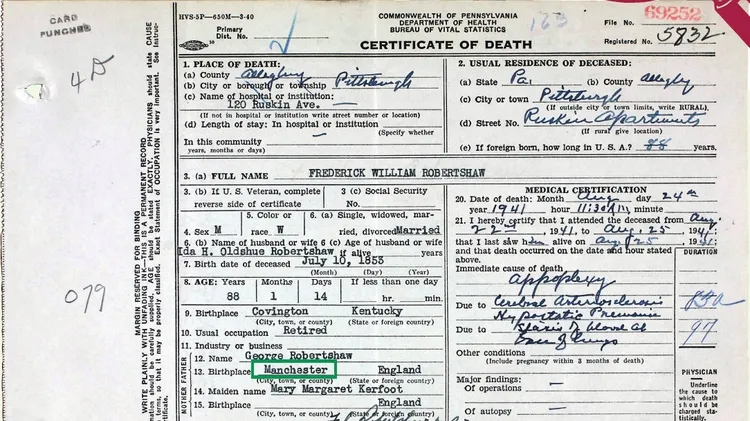 CARD
PUNCHED
4D
079
WRITE PLAINLY WITH UNFADING INK—THIS IS A PERMANENT RECORD
MARGIN RESERVED FOR BINDING
HVS-5P—650M—3-40
Primary
Dist. No.
COMMONWEALTH OF PENNSYLVANIA
DEPARTMENT OF HEALTH
BUREAU OF VITAL STATISTICS
CERTIFICATE OF DEATH
File No. 69252
Registered No. 5832
1. PLACE OF DEATH:
(a) County Allegheny
(b) City or borough or township Pittsburgh
(c) Name of hospital or institution:
120 Ruskin Ave.
(If not in hospital or institution write street number or location)
(d) Length of stay: In hospital or institution
(Specify whether
In this community
years, months or days)
2. USUAL RESIDENCE OF DECEASED:
(a) State Pa. (b) County Allegheny
(c) City or town Pittsburgh
(If outside city or town limits, write RURAL)
(d) Street No. Ruskin Apartments
(If rural give location)
(e) If foreign born, how long in U. S. A.? 88 years
3. (a) FULL NAME FREDERICK WILLIAM ROBERTSHAW
3. (b) If U. S. Veteran, complete
reverse side of certificate
3 (c) Social Security
No.
4. Sex M
5. Color or
race W
6. (a) Single, widowed, mar-
ried, divorced Married
6. (b) Name of husband or wife 6 (c) Age of husband or wife
Ida H. Oldshue Robertshaw if alive years
7. Birth date of deceased July 10, 1853
(Month) (Day) (Year)
8. AGE: Years Months Days If less than one day
88 1 14 hr. min.
9. Birthplace Covington Kentucky
(City, town, or county) (State or foreign country)
10. Usual occupation Retired
11. Industry or business
MOTHER FATHER
12. Name George Robertshaw
13. Birthplace Manchester England
(City, town, or county) (State or foreign country)
14. Maiden name Mary Margaret Kerfoot
15. Birthplace England
(City, town, or county) (State or foreign country)
MEDICAL CERTIFICATION
20. Date of death: Month Aug day 24th
year 1941 hour 11:30 minute
21. I hereby certify that I attended the deceased from Aug.
22nd, 1941, to Aug. 25, 1941
that I last saw him alive on Aug. 25, 1941;
and that death occurred on the date and hour stated
above.
Immediate cause of death
DURATION
Appoplexy
Due to Cerebral Arteriosclerosis
Hypostatic Pneumonia
Due to Stasis of blood at
base of lungs
83a
97
Other conditions
(Include pregnancy within 3 months of death)
Major findings:
Of operations
Of autopsy
PHYSICIAN
Underline
the cause to
which death
should be
charged sta-